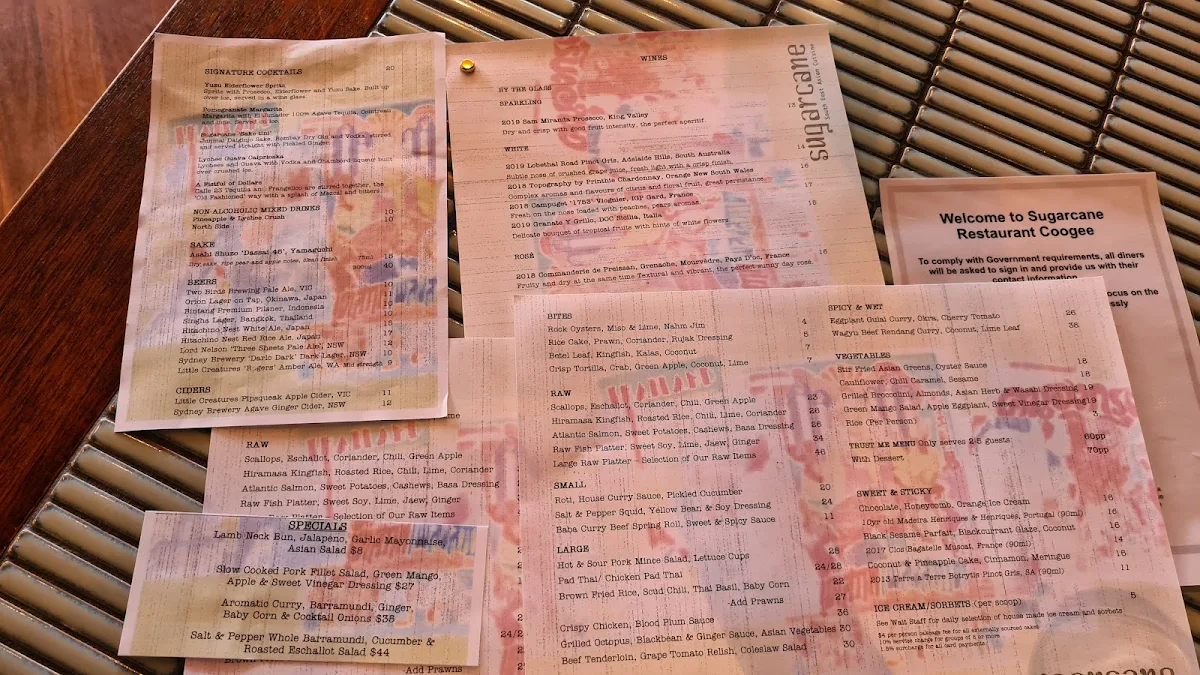 SIGNATURE COCKTAILS 20
Yuzu Elderflower Spritz
Spritz with Prosecco, Elderflower and Yuzu Sake. Built up
over ice, served in a wine glass.
Pomegranate Margarita
Margarita with El Jimador 100% Agave Tequila, Cointreau
Sugarcane 'Sake-tini'
Junmai Daiginjo Sake, Bombay Dry Gin and Vodka, stirred
and served straight with Pickled Ginger
Lychee Guava Caiprioska
Lychees and Guava with Vodka and Chambord liqueur built
over crushed ice.
A Fistful of Dollars
Calle 23 Tequila and Frangelico are stirred together, the
'Old Fashioned' way with a splash of Mezcal and bitters.
NON ALCOHOLIC MIXED DRINKS
Pineapple & Lychee Crush 10
North Side 10
SAKE
Asahi Shuzo 'Dassai 45', Yamaguchi
Dry sake, ripe pear and apple notes, clean finish
BEERS
Two Birds Brewing Pale Ale, VIC 10
Orion Lager on Tap, Okinawa, Japan
Bintang Premium Pilsner, Indonesia
Singha Lager, Bangkok, Thailand
Hitachino Nest White Ale, Japan
Hitachino Nest Red Rice Ale, Japan
Lord Nelson 'Three Sheets Pale Ale', NSW
Sydney Brewery 'Darlo Dark' Dark Lager, NSW 10
Little Creatures 'Rogers' Amber Ale, WA Mid strength 9
CIDERS
Little Creatures Pipsqueak Apple Cider, VIC 11
Sydney Brewery Agave Ginger Cider, NSW 12
WINES
BY THE GLASS
SPARKLING
2019 Sam Miranda Prosecco, King Valley 13
Dry and crisp with good fruit intensity, the perfect aperitif.
WHITE
2019 Lobethal Road Pinot Gris, Adelaide Hills, South Australia 14
Subtle nose of crushed grape juice, fresh light with a crisp finish.
2018 Topography by Printhie Chardonnay, Orange New South Wales 16
Complex aromas and flavours of citrus and floral fruit, great persistence.
2018 Campuget '1753' Viognier, IGP Gard, France 17
Fresh on the nose loaded with peaches, pears aromas.
2019 Granate Y Grillo, DOC Sicilia, Italia 15
Delicate bouquet of tropical fruits with hints of white flowers
ROSÉ
2018 Commanderie de Peissan, Grenache, Mourvèdre, Pays D'oc, France 16
Fruity and dry at the same time Textural and vibrant, the perfect sunny day rosé.
sugarcane
South East Asian Cuisine
Welcome to Sugarcane
Restaurant Coogee
To comply with Government requirements, all diners
will be asked to sign in and provide us with their
contact information
ocus on the
RAW
Scallops, Eschallot, Coriander, Chili, Green Apple
Hiramasa Kingfish, Roasted Rice, Chili, Lime, Coriander
Atlantic Salmon, Sweet Potatoes, Cashews, Basa Dressing
Raw Fish Platter, Sweet Soy, Lime, Jaew, Ginger
Platter – Selection of Our Raw Items
SPECIALS
Lamb Neck Bun, Jalapeno, Garlic Mayonnaise,
Asian Salad $8
Slow Cooked Pork Fillet Salad, Green Mango,
Apple & Sweet Vinegar Dressing $27
Aromatic Curry, Barramundi, Ginger,
Baby Corn & Cocktail Onions $38
Salt & Pepper Whole Barramundi, Cucumber &
Roasted Eschallot Salad $44
Add Prawns
BITES
Rock Oysters, Miso & Lime, Nahm Jim 4
Rice Cake, Prawn, Coriander, Rujak Dressing 6
Betel Leaf, Kingfish, Kalas, Coconut 7
Crisp Tortilla, Crab, Green Apple, Coconut, Lime 7
RAW
Scallops, Eschallot, Coriander, Chili, Green Apple 23
Hiramasa Kingfish, Roasted Rice, Chili, Lime, Coriander 26
Atlantic Salmon, Sweet Potatoes, Cashews, Basa Dressing 26
Raw Fish Platter, Sweet Soy, Lime, Jaew, Ginger 34
Large Raw Platter – Selection of Our Raw Items 46
SMALL
Roti, House Curry Sauce, Pickled Cucumber 20
Salt & Pepper Squid, Yellow Bean & Soy Dressing 24
Baba Curry Beef Spring Roll, Sweet & Spicy Sauce 11
LARGE
Hot & Sour Pork Mince Salad, Lettuce Cups 28
Pad Thai/ Chicken Pad Thai 24/28
Brown Fried Rice, Scud Chili, Thai Basil, Baby Corn 22
-Add Prawns 27
Crispy Chicken, Blood Plum Sauce 36
Grilled Octopus, Blackbean & Ginger Sauce, Asian Vegetables 30
Beef Tenderloin, Grape Tomato Relish, Coleslaw Salad 30
SPICY & WET
Eggplant Gulai Curry, Okra, Cherry Tomato 26
Wagyu Beef Rendang Curry, Coconut, Lime Leaf 38
VEGETABLES
Stir Fried Asian Greens, Oyster Sauce 18
Cauliflower, Chili Caramel, Sesame 18
Grilled Broccolini, Almonds, Asian Herb & Wasabi Dressing 19
Green Mango Salad, Apple Eggplant, Sweet Vinegar Dressing 19
Rice (Per Person) 3
TRUST ME MENU Only serves 2-5 guests 60pp
With Dessert 70pp
SWEET & STICKY
Chocolate, Honeycomb, Orange Ice Cream 16
10yr old Madeira Henriques & Henriques, Portugal (90ml) 16
Black Sesame Parfait, Blackcurrant Glaze, Coconut 16
2017 Clos Bagatelle Muscat, France (90ml) 14
Coconut & Pineapple Cake, Cinnamon, Meringue 16
2013 Terre a Terre Botrytis Pinot Gris, SA (90ml) 11
ICE CREAM/SORBETS (per scoop) 5
See Wait Staff for daily selection of house made ice cream and sorbets
$4 per person cakeage fee for all externally sourced cakes
10% service charge for groups of 8 or more
1.5% surcharge for all card payments